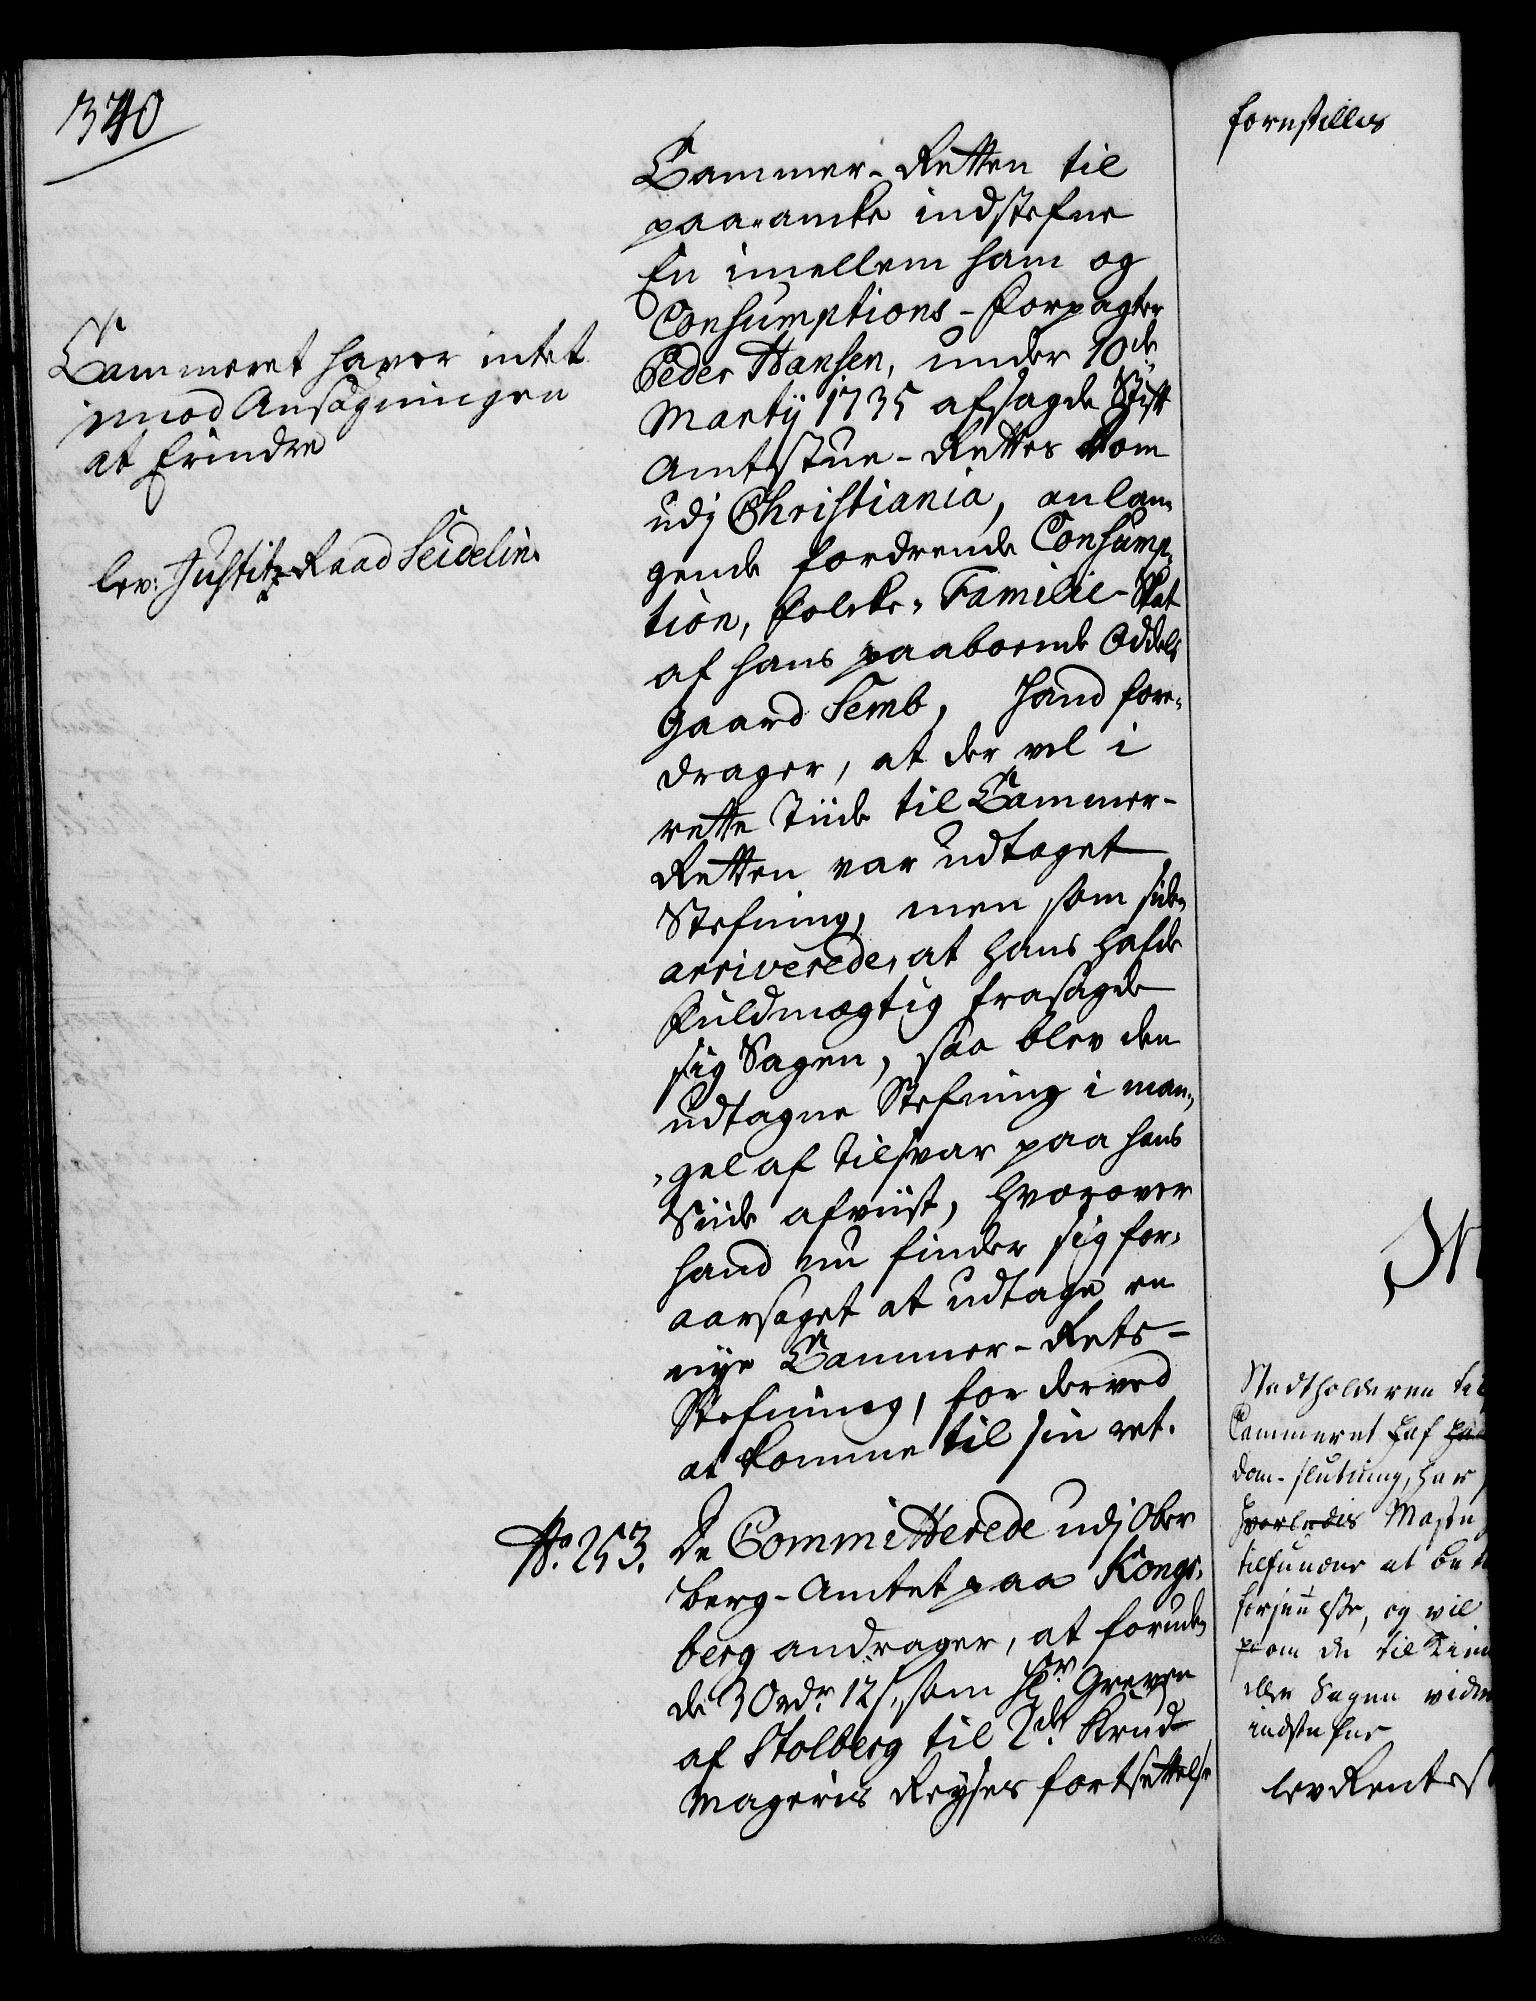 340
Cammer-Retten til
paa-ancke indstefne
En imellem ham og
Consumptions-Forpagter
Peder Hansen, under 10de
Martij 1735 afsagde Stift
Amtstue-Rettes Dom
udj Christiania, anlan-
gende fordrende Consump-
tion, Folcke- Familie-Skat
af hans paaboende Oddels
Gaard Semb, Hand fore-
drager, at der vel i
rette Tiide til Cammer-
Retten var udtaget
Stefning, men som siden
arriverede, at hans hafde
Fuldmægtig frasagde
sig Sagen, saa blev den
udtagne Stefning i man-
gel af Tilsvar paa hans
Siide afviist, hvorover
hand nu finder sig for-
aarsaget at udtage en
nye Cammer-Rets-
Stefning, for derved
at komme til sin ret.
Cammeret haver intet
imod Ansøgningen
at Erindre
lev: Justitz Raad Seidelin.
No. 253. De Committerede udj Ober
berg-Amtet paa Kongs-
berg andrager, at foruden
de 30 rdr. 12 s, som Hr Greven
af Stolberg til 2de Krud-
mageris Reyses fortsettelse
forestilles
Stadtholderen til
Cammeret
dom-slutning, har
hvorledes
tilfunder at
og vil
om de til
eller Sagen videre
indstefne
lev Rent